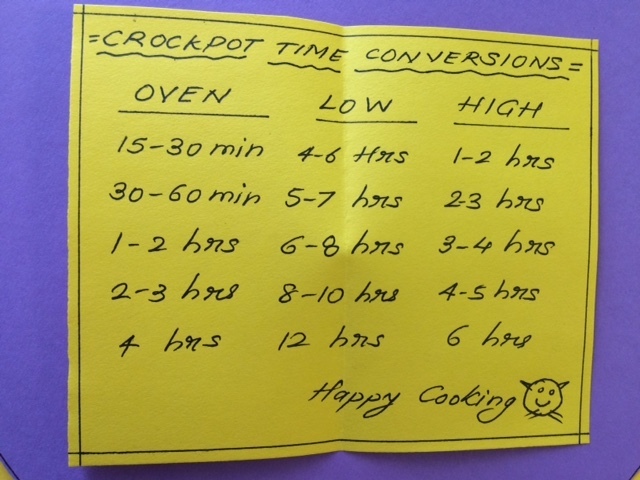 =CROCKPOT TIME CONVERSIONS=
OVEN LOW HIGH
15-30 min 4-6 Hrs 1-2 hrs
30-60 min 5-7 hrs 2-3 hrs
1-2 hrs 6-8 hrs 3-4 hrs
2-3 hrs 8-10 hrs 4-5 hrs
4 hrs 12 hrs 6 hrs
Happy Cooking